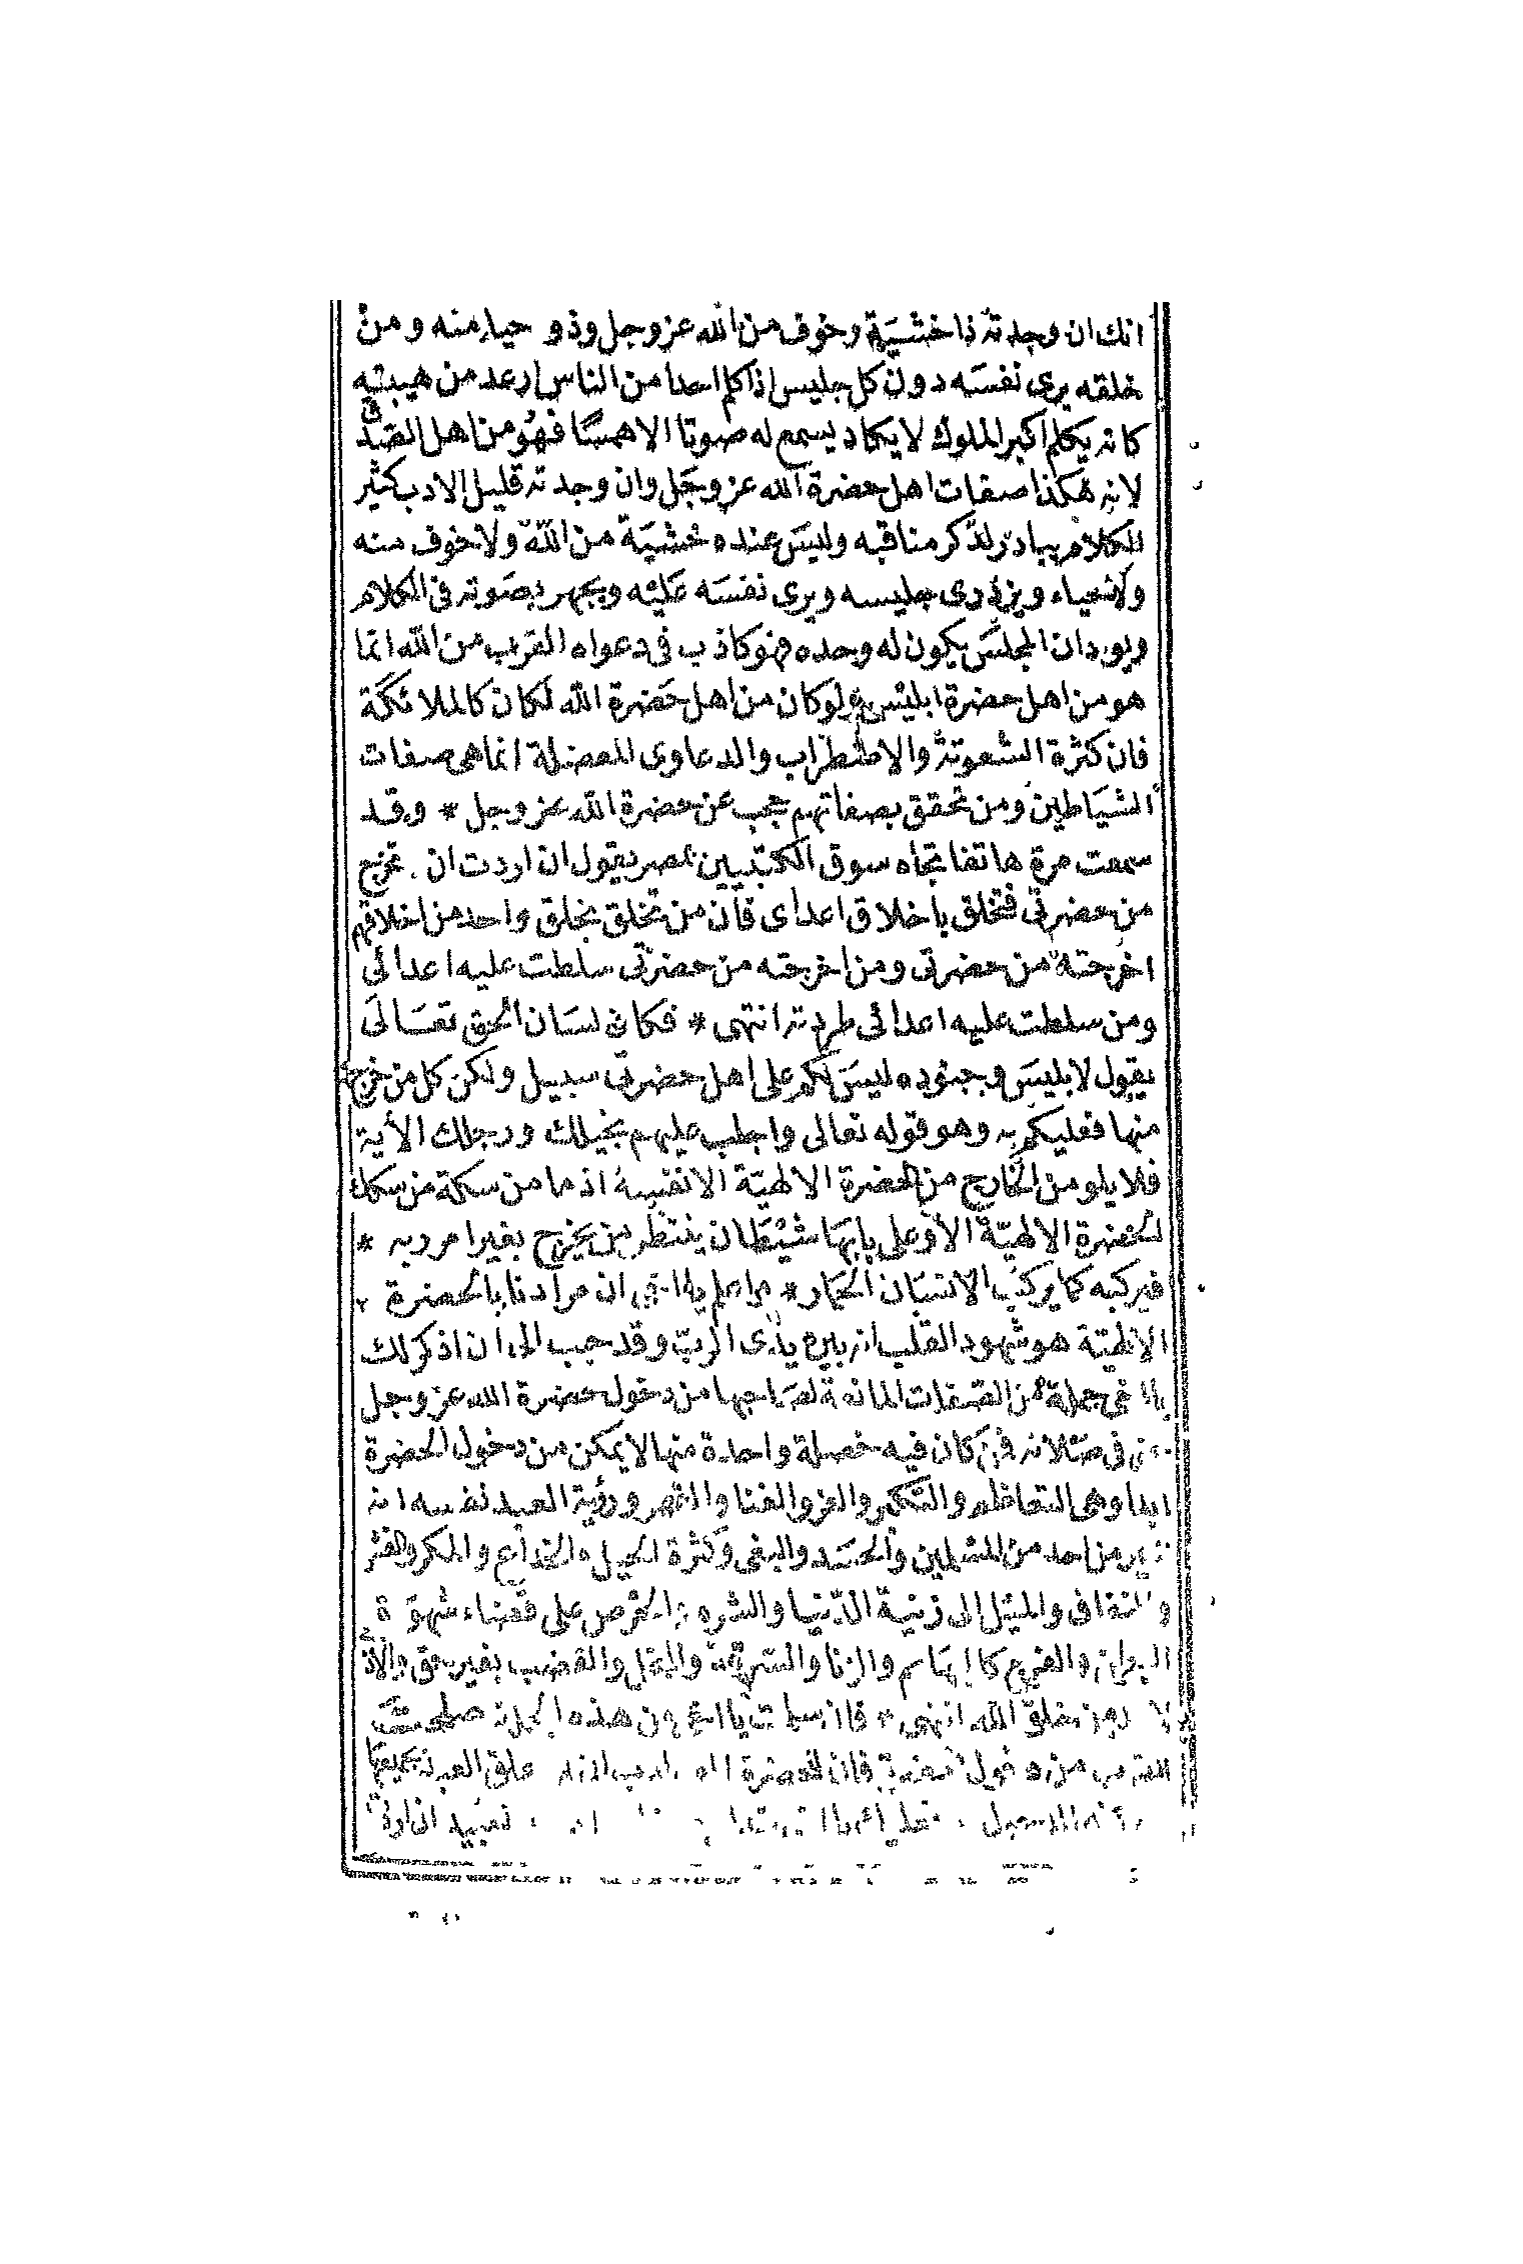 انك ان وجدته ذا خشية وخوف من الله عز وجل وذو حياء منه ومن
خلقه يرى نفسه دون كل جليس اذا كلم احدا من الناس ارعد من هيبته
كانه يكلم اكبر الملوك لا يكاد يسمع له صوتا الا همسا فهو من اهل الصدق
لانه هكذا صفات اهل حضرة الله عز وجل وان وجدته قليل الادب كثير
الكلام يبادر لذكر مناقبه وليس عنده خشية من الله ولا خوف منه
ولا حياء ويزدرى جليسه ويرى نفسه عليه ويجهر بصوته فى الكلام
ويود ان المجلس يكون له وحده فهو كاذب فى دعواه القرب من الله انما
هو من اهل حضرة ابليس ولو كان من اهل حضرة الله لكان كالملائكة
فان كثرة الشعوتة والاضطراب والدعاوى المعضلة انما هى صفات
الشياطين ومن تحقق بصفاتهم حجب عن حضرة الله عز وجل * وقد
سمعت مرة هاتفا تجاه سوق الكتبيين بمصر يقول ان اردت ان تخرج
من حضرتى فتخلق باخلاق اعداى فان من تخلق بخلق واحد من اخلاقهم
اخرجته من حضرتى ومن اخرجته من حضرتى سلطت عليه اعدائى
ومن سلطت عليه اعدائى طردته انتهى * فكان لسان الحق تعالى
يقول لابليس وجنوده ليس لكم على اهل حضرتى سبيل ولكن كل من خرج
منها فعليكم به وهو قوله تعالى واجلب عليهم بخيلك ورجلك الأية
فلا يلومن الخارج من الحضرة الالهية الا نفسه اذ ما من سكة من سكك
الحضرة الالهية الا وعلى بابها شيطان ينتظر من يخرج بغير امر ربه *
فيركبه كما يركب الانسان الحمار * واعلم يا اخى ان مرادنا بالحضرة
الالهية هو شهود القلب انه بين يدى الرب وقد حبب الى ان اذكر لك
يا اخى جملة من الصفات المانعة لصاحبها من دخول حضرة الله عز وجل
فى صلاته فمن كان فيه خصلة واحدة منها لا يمكن من دخول الحضرة
ابدا وهى التعاظم والتكبر والعز والغنا والقهر ورؤية العبد نفسه انه
خير من احد من المسلمين والحسد والبغى وكثرة الحيل والخداع والمكر
والنفاق والميل الى زينة الدنيا والشره والحرص على قضاء شهوة
البطن والفرج كالبهائم والزنا والسرقة والقتل والغضب بغير حق
خلق الله انتهى * فان سلمت يا اخى من هذه الجملة صلحت
من دخول فان الحضرة العبد بجميعها